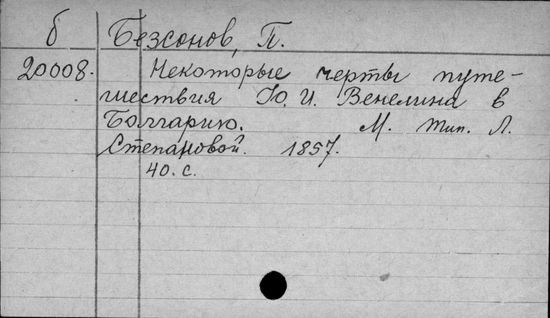 б Безсонов, П.
20008. Некоторые черты путе-
шествия Ю. И. Венелина в
Болгарию. М. тип. Л.
Степановой. 1857.
40. с.